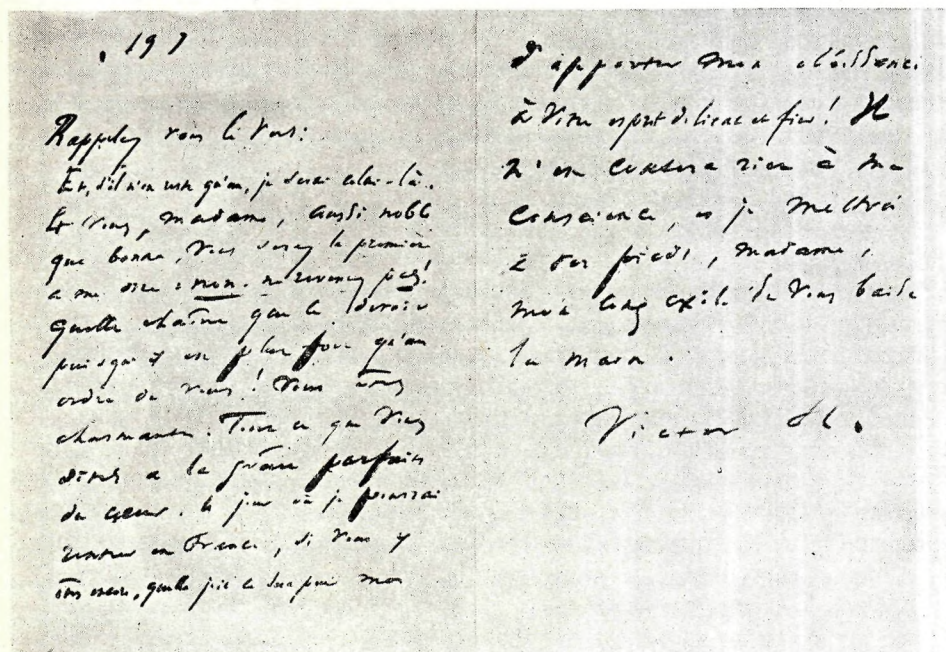 197
Rappelez vous le vers :
Et, s'il n'en reste qu'un, je serai celui-là.
Et vous, Madame, aussi noble
que bonne, vous serez la première
a me dire : non. ne revenez pas!
Quelle chaîne que le devoir
puisqu'il est plus fort qu'un
ordre de vous! Vous êtes
charmante. Tout ce que vous
dites a la grâce parfaite
du cœur. le jour où je pourrai
rentrer en France, si vous y
êtes encore, quelle joie ce sera pour moi
d'apporter mon obéissance
à votre esprit délicat et fier! Il
n'en coutera rien à ma
conscience, et je mettrai
à vos pieds, Madame,
mon long exil. Je vous baise
la main.
Victor H.